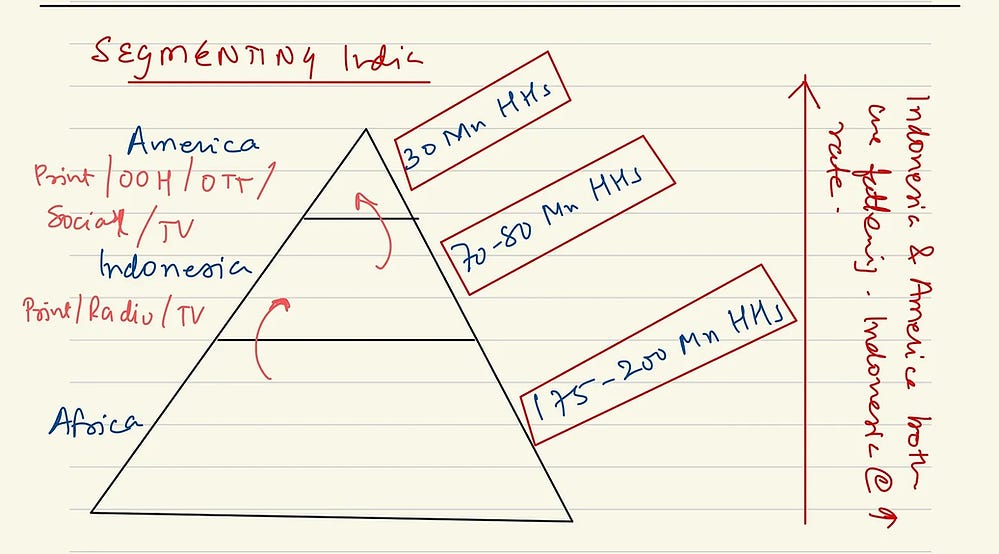 SEGMENTING India
America
Print/OOH/OTT/
Social/TV
Indonesia
Print/Radio/TV
Africa
30 Mn HHs
70-80 Mn HHs
175-200 Mn HHs
Indonesia & America both
are fattening. Indonesia @ ↑
rate.